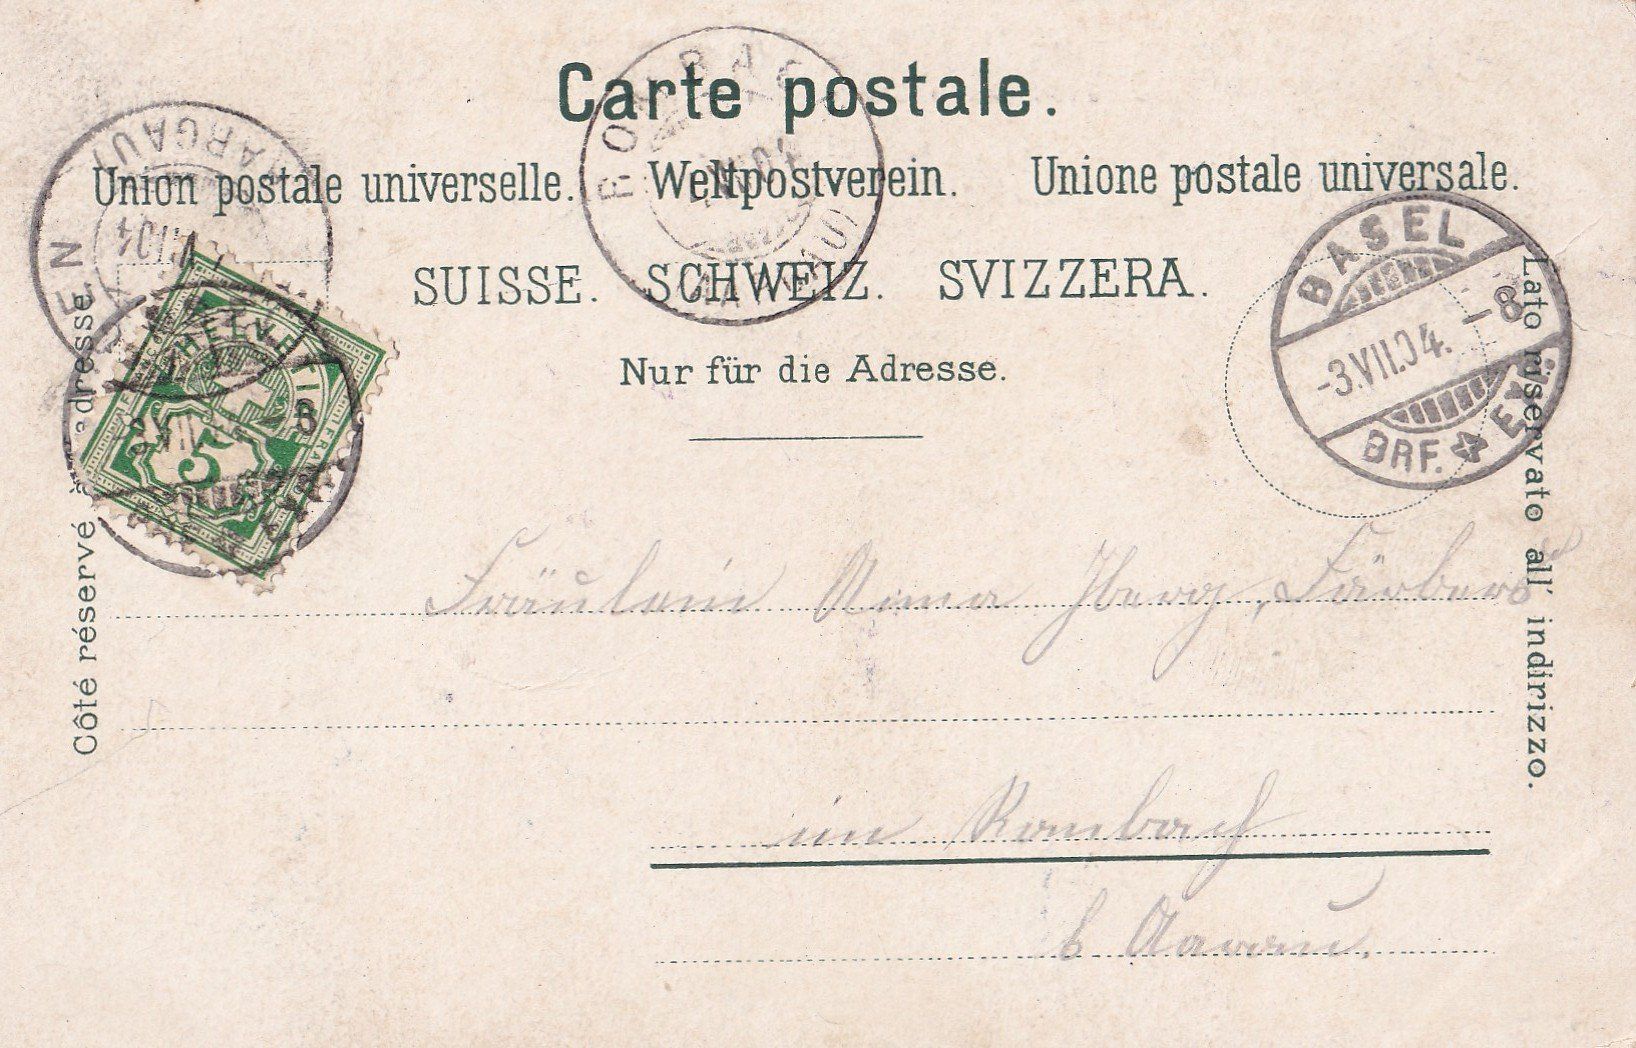 Carte postale.
Union postale universelle. Weltpostverein. Unione postale universale.
SUISSE. SCHWEIZ. SVIZZERA.
Nur für die Adresse.
Côté réservé à l'adresse
Lato riservato all' indirizzo.
HELVETIA
5
BASEL
-3.VII.04. -8
BRF. EXP.
Fräulein Anna Iberg, Färbers
in Rombach
b Aarau.